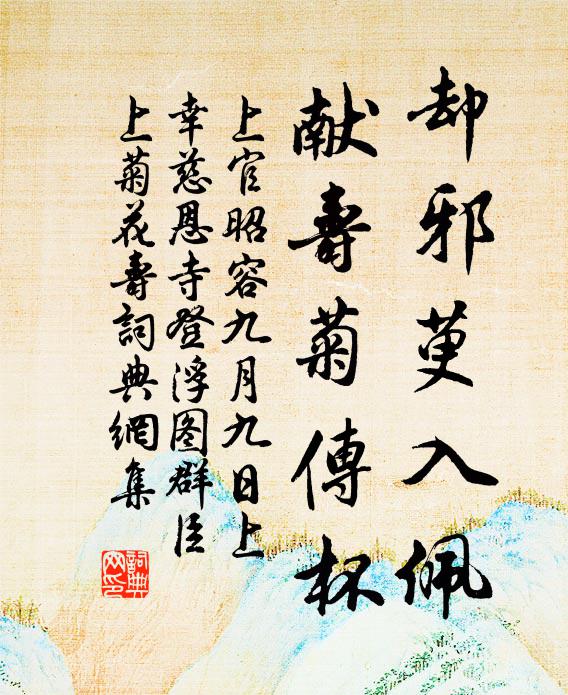 却邪萸入佩
献壽菊傳杯
上官昭容九月九日上
幸慈恩寺登浮图群臣
上菊花壽詞典網集
詞典网印